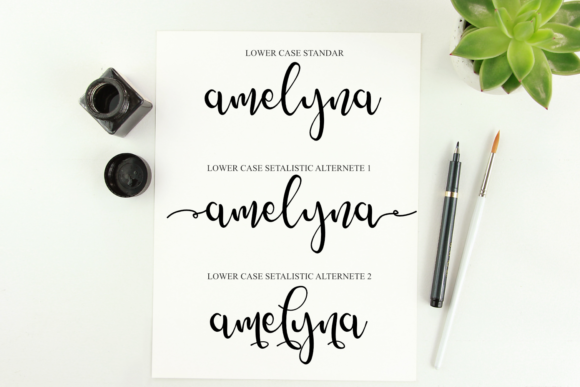 LOWER CASE STANDAR
amelyna
LOWER CASE SETALISTIC ALTERNETE 1
amelyna
LOWER CASE SETALISTIC ALTERNETE 2
amelyna